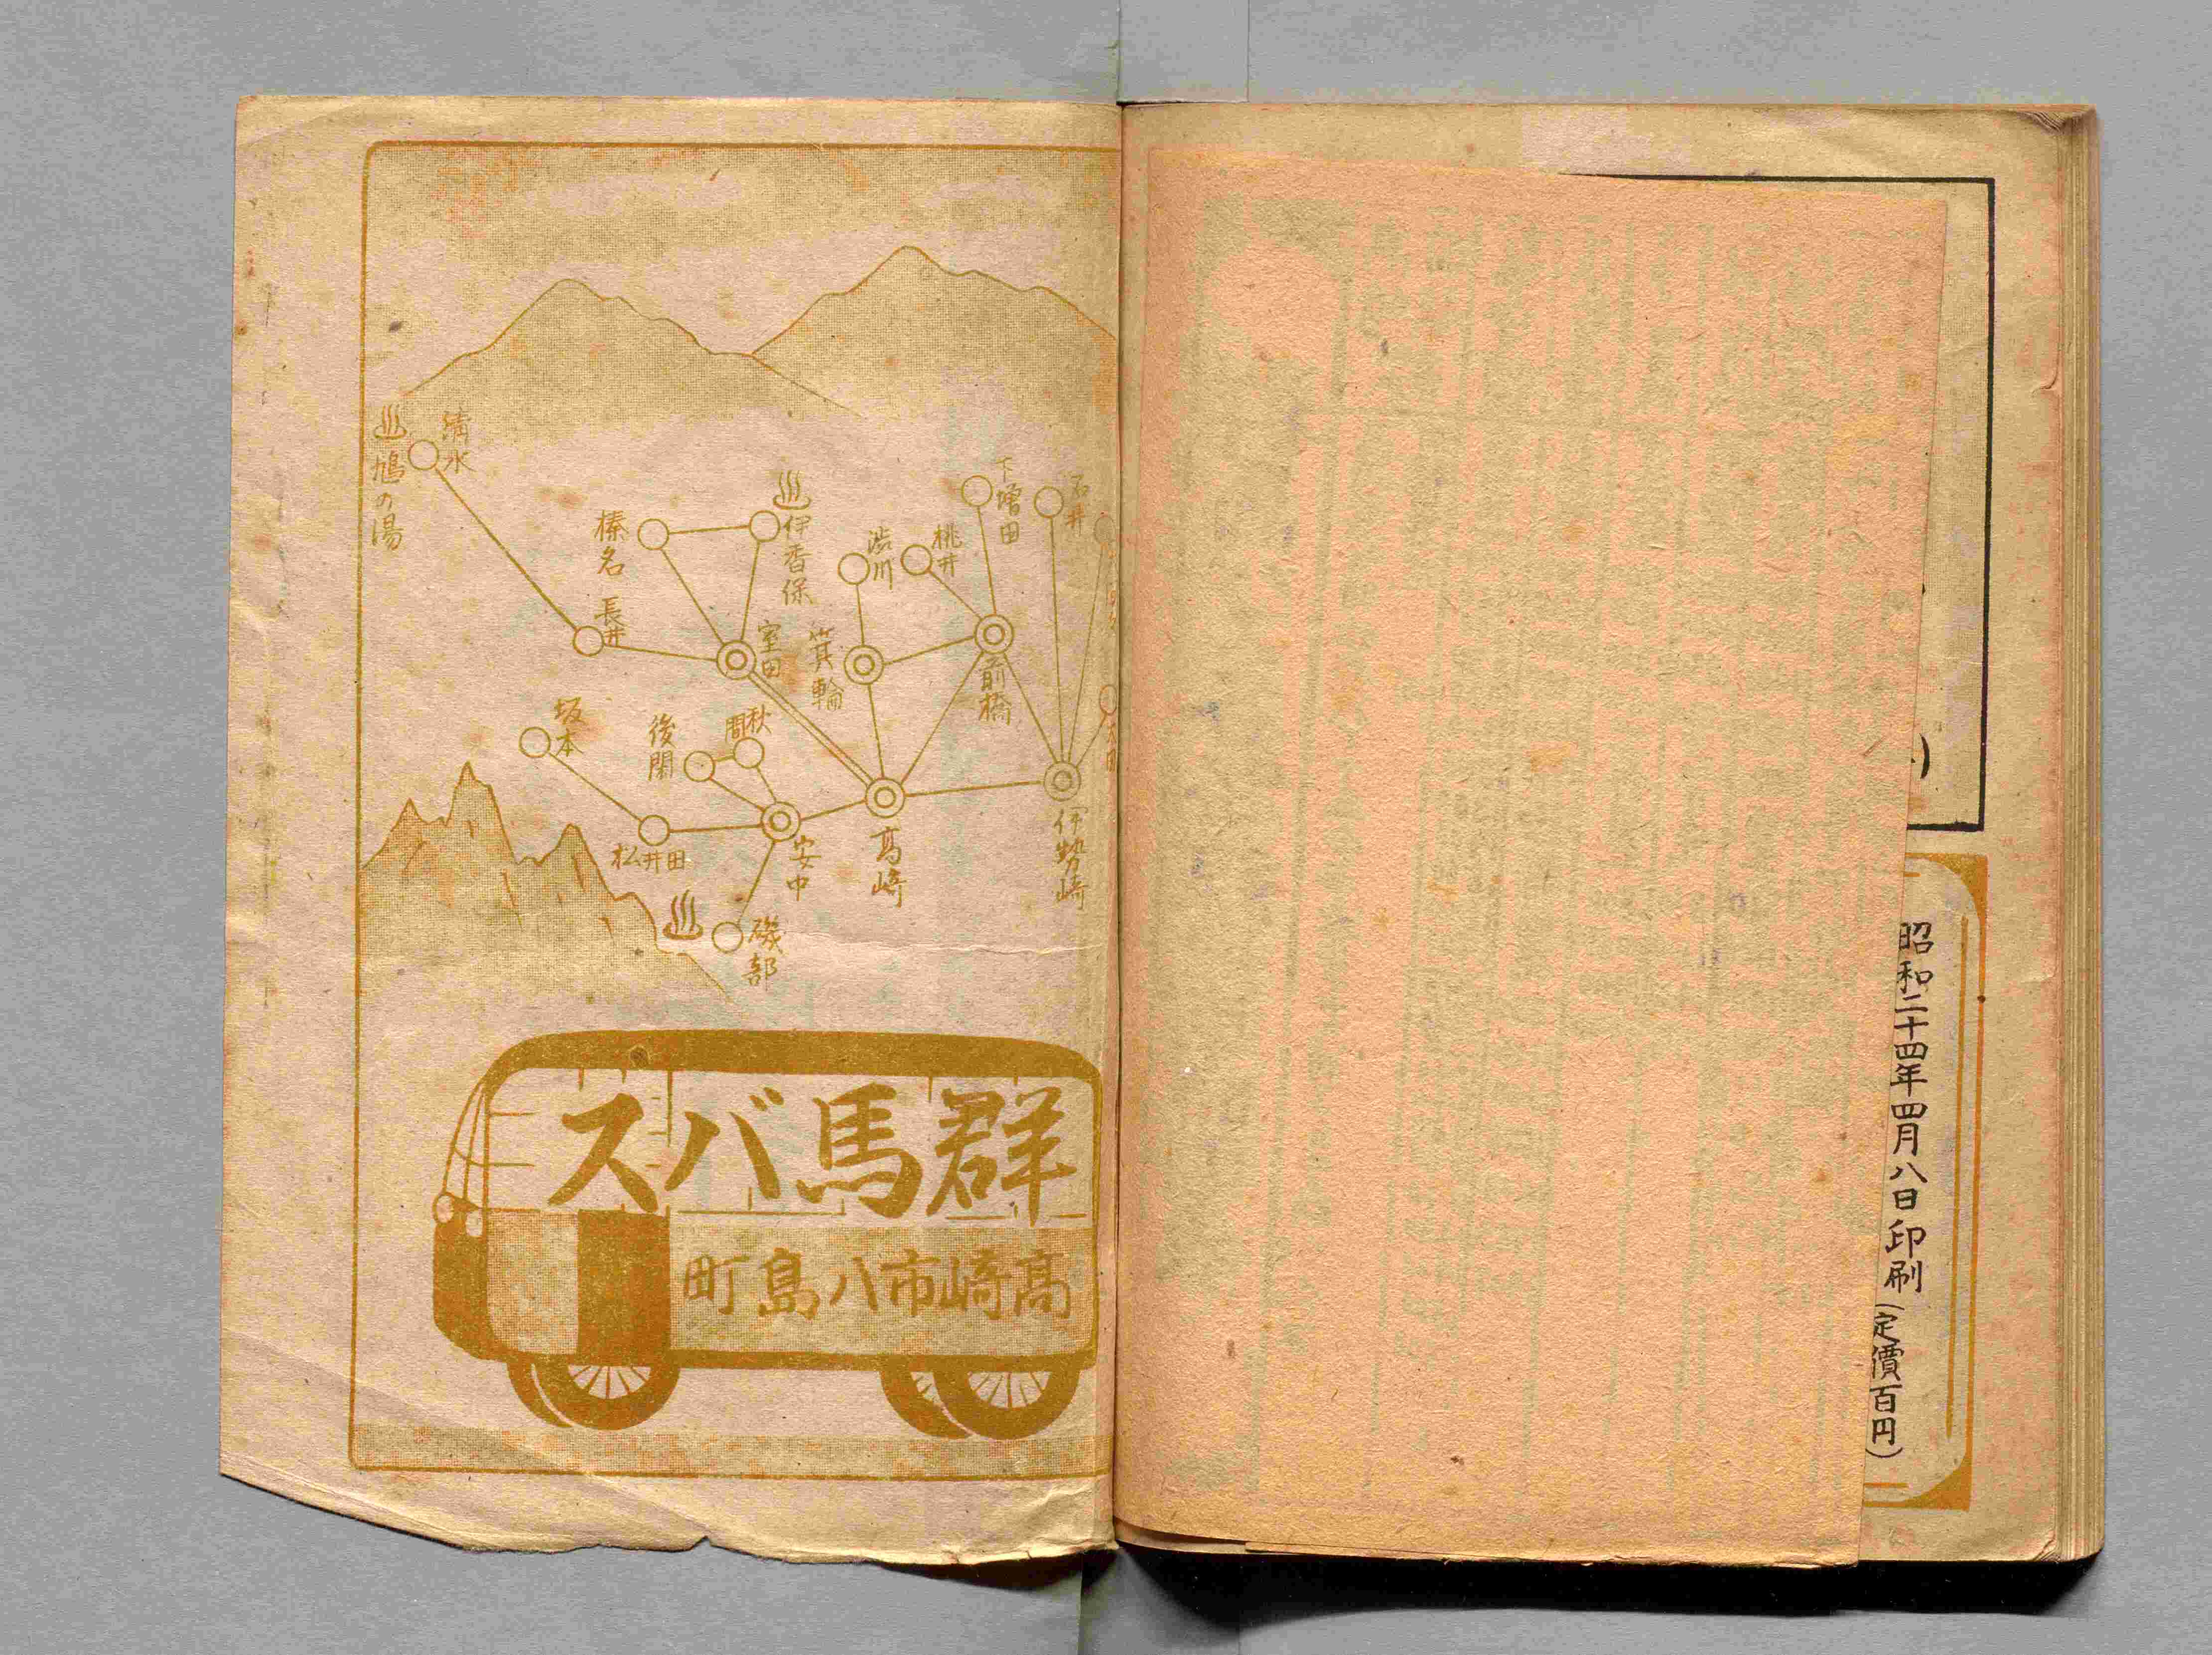 清水
鳩の湯
榛名
伊香保
長井
室田
渋川
桃井
下増田
石井
箕輪
前橋
坂本
後閑
秋間
松井田
安中
高崎
伊勢崎
磯部
群馬バス
高崎市八島町
昭和二十四年四月八日印刷(定價百円)